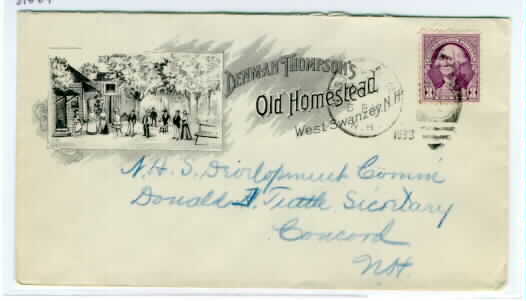 DENMAN THOMPSON'S
Old Homestead
West Swanzey, N.H.
N.H.
1933
3 3
N.H.S. Divelopment Comm
Donald D. Tuttle Sicortary
Concord
N.H.